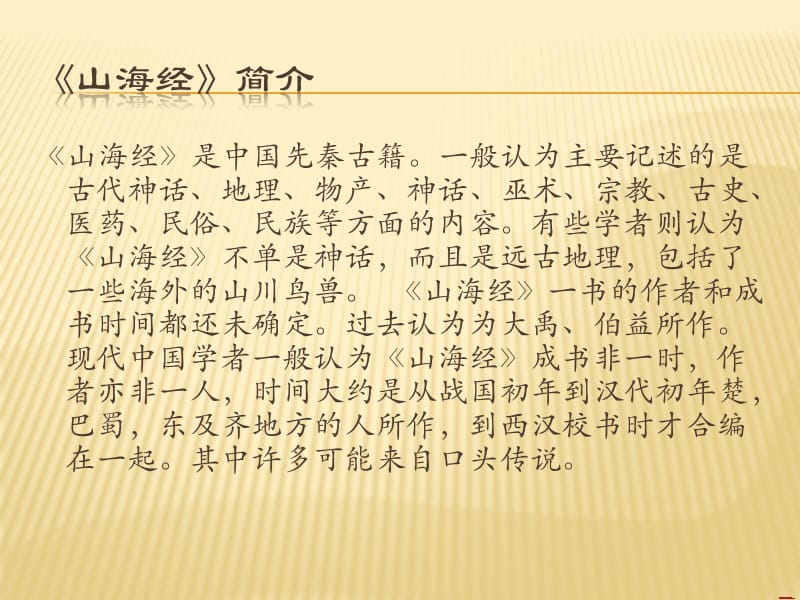 《山海经》简介
《山海经》是中国先秦古籍。一般认为主要记述的是
古代神话、地理、物产、神话、巫术、宗教、古史、
医药、民俗、民族等方面的内容。有些学者则认为
《山海经》不单是神话，而且是远古地理，包括了
一些海外的山川鸟兽。 《山海经》一书的作者和成
书时间都还未确定。过去认为为大禹、伯益所作。
现代中国学者一般认为《山海经》成书非一时，作
者亦非一人，时间大约是从战国初年到汉代初年楚，
巴蜀，东及齐地方的人所作，到西汉校书时才合编
在一起。其中许多可能来自口头传说。